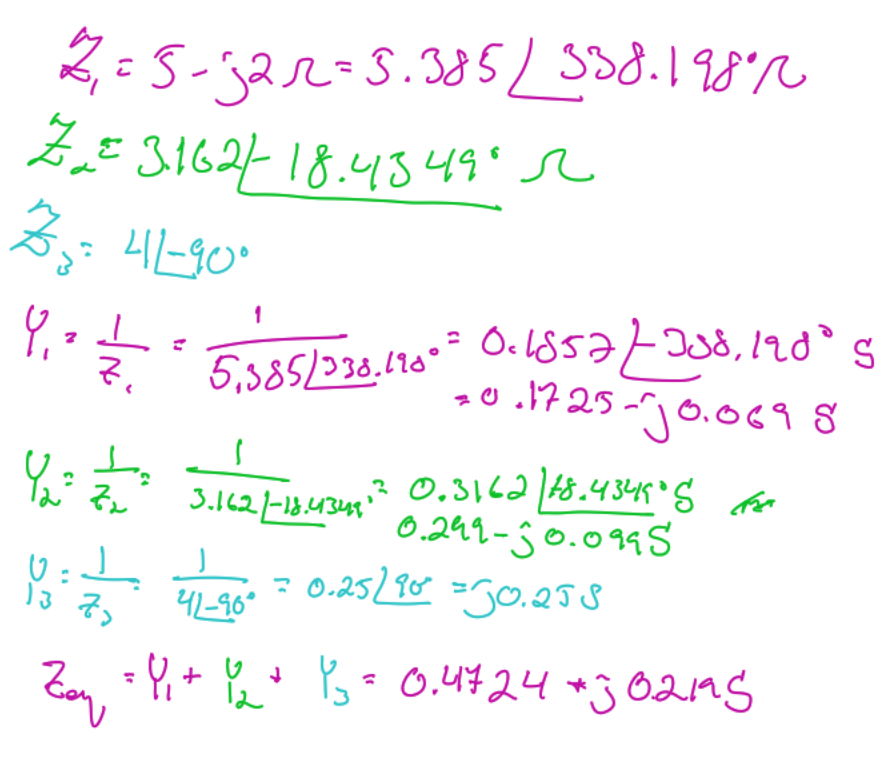 Z₁ = 5 - j2 Ω = 5.385 ∠338.198° Ω
Z₂ = 3.162 ∠-18.4349° Ω
Z₃ = 4 ∠-90°
Y₁ = 1/Z₁ = 1/(5.385 ∠338.198°) = 0.1857 ∠-338.198° S
= 0.1725 - j0.069 S
Y₂ = 1/Z₂ = 1/(3.162 ∠-18.4349°) = 0.3162 ∠+18.4349° S
0.299 - j0.099 S
Y₃ = 1/Z₃ = 1/(4 ∠-90°) = 0.25 ∠90° = j0.25 S
Zeq = Y₁ + Y₂ + Y₃ = 0.4724 + j0.219 S